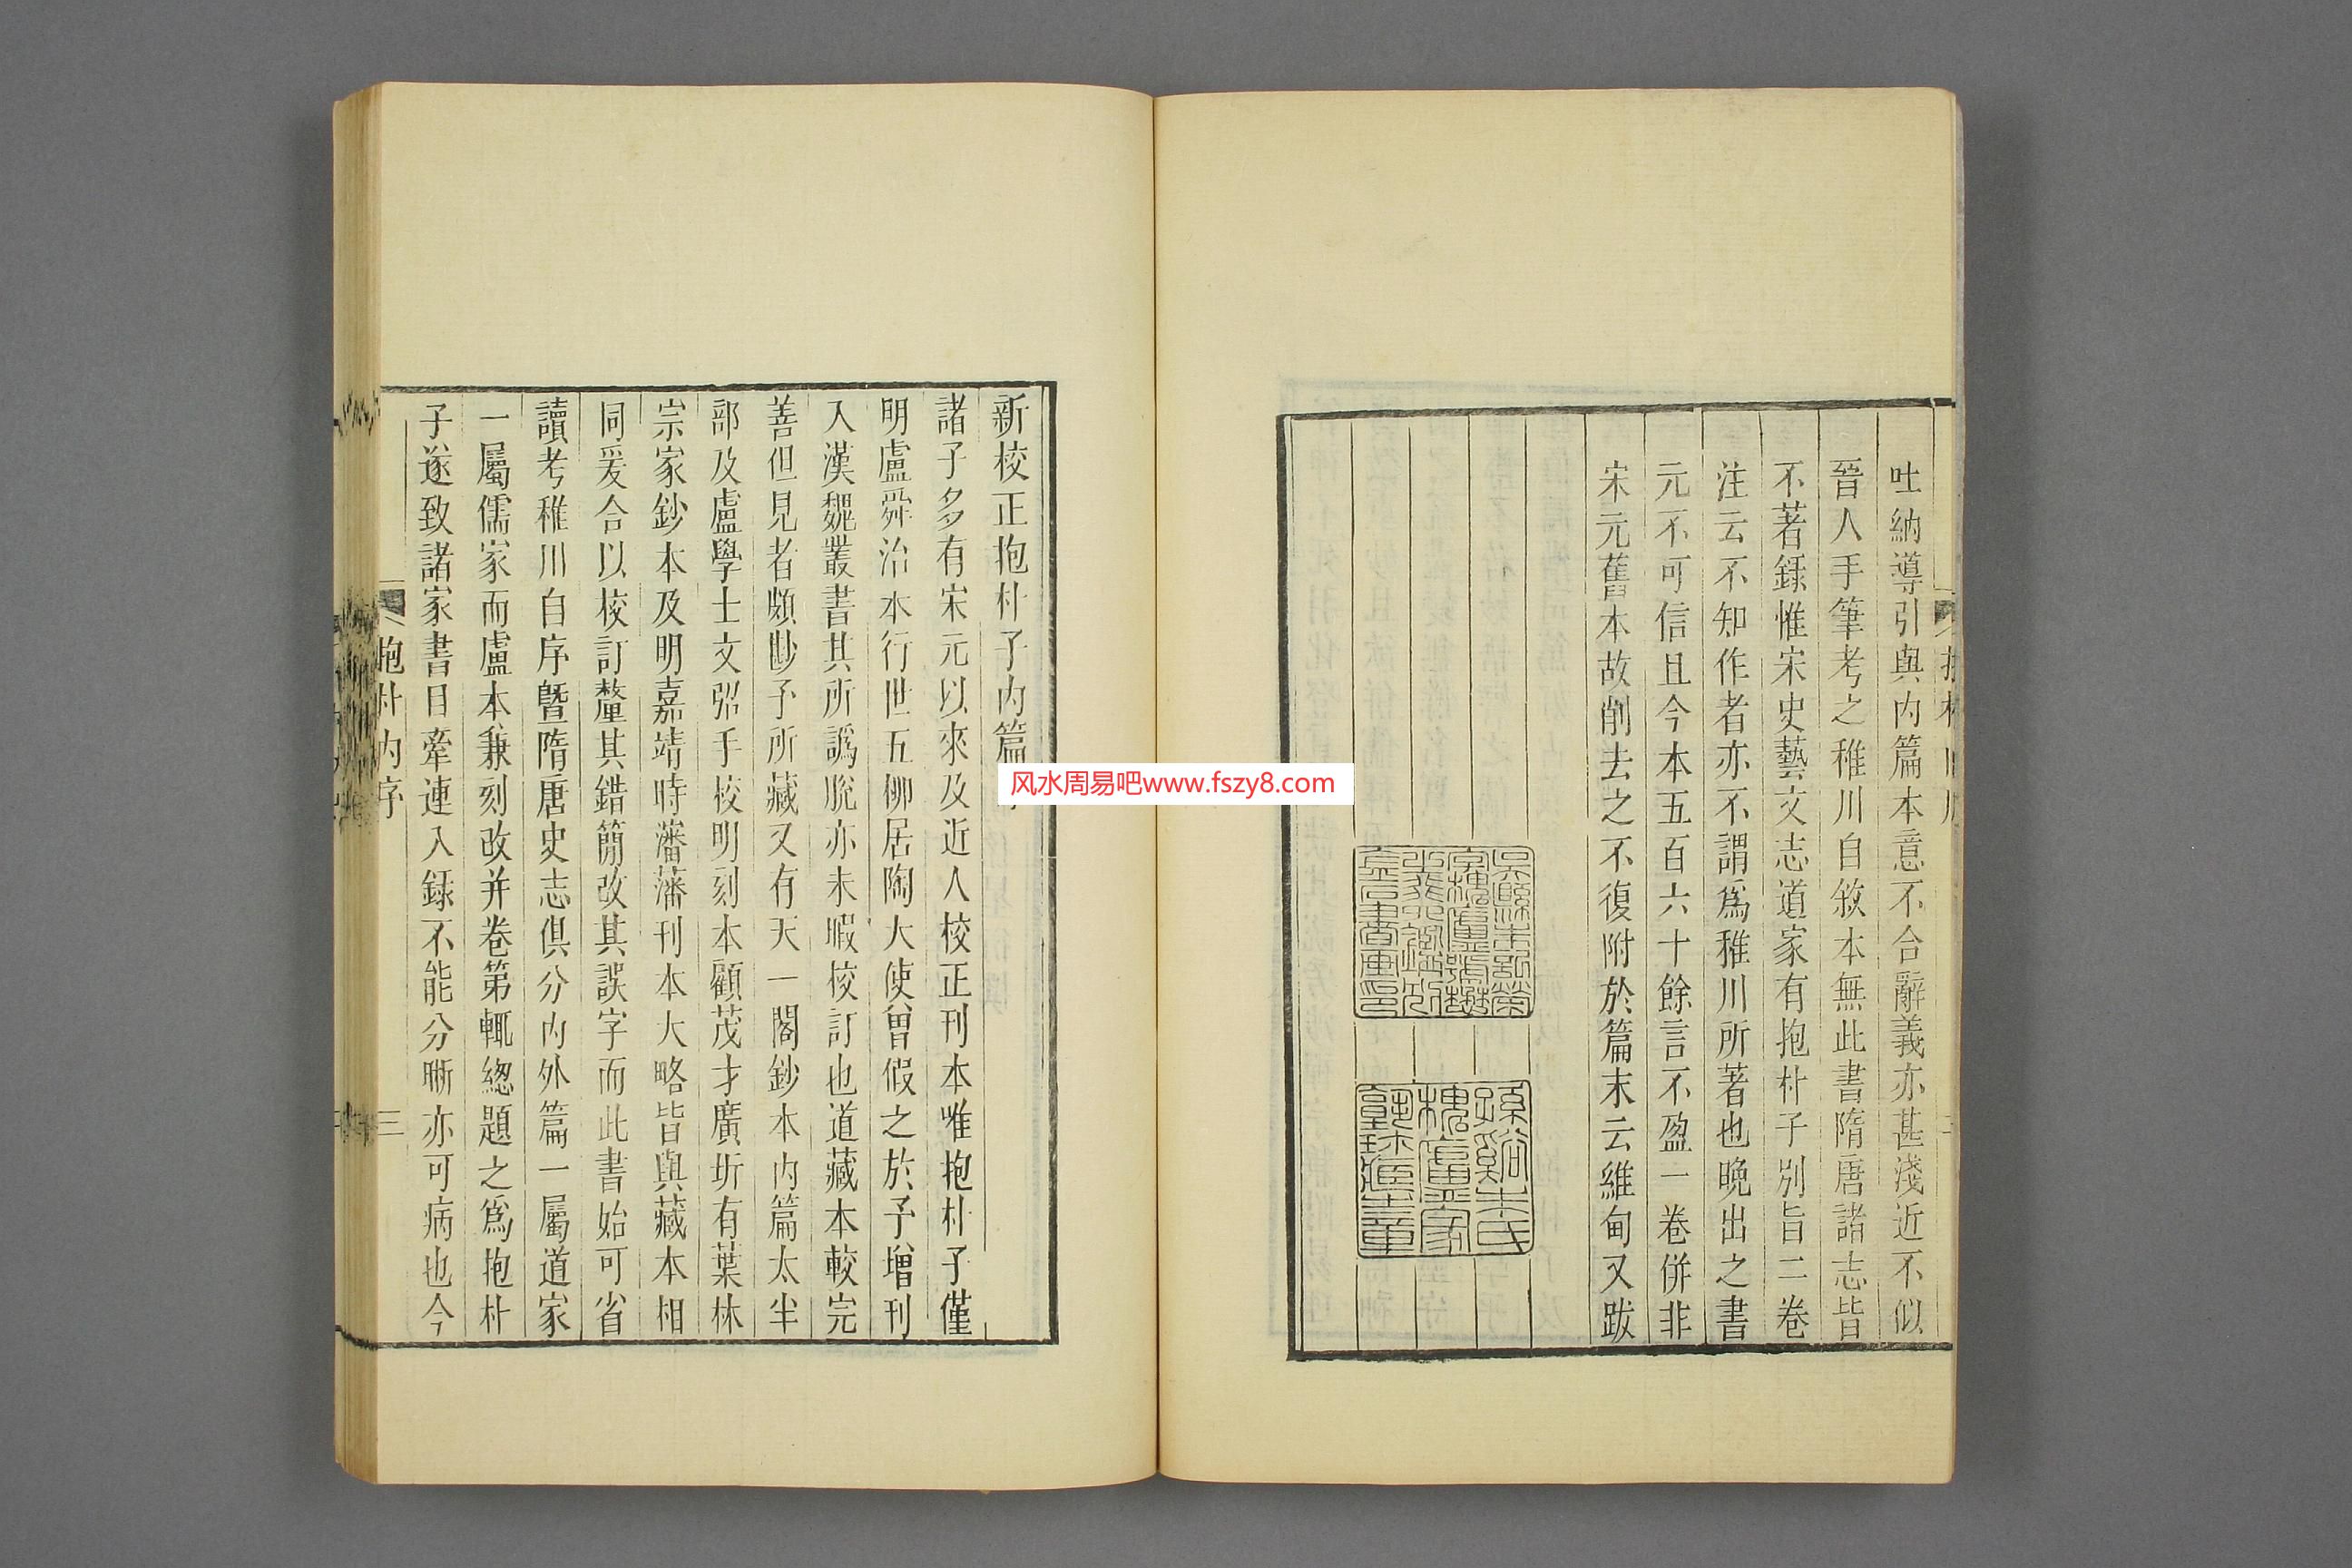 吐納導引與內篇本意不合辭義亦甚淺近不似
晉人手筆考之稚川自敘本無此書隋唐諸志皆
不著錄惟宋史藝文志道家有抱朴子別旨二卷
注云不知作者亦不謂爲稚川所著也晚出之書
元不可信且今本五百六十餘言不盈一卷併非
宋元舊本故削去之不復附於篇末云維甸又跋
吳縣朱記榮
新校正抱朴子內篇
諸子多有宋元以來及近人校正刊本唯抱朴子僅
明盧舜治本行世五柳居陶大使曾假之於予增刊
入漢魏叢書其所譌脫亦未暇校訂也道藏本較完
善但見者頗尠予所藏又有天一閣鈔本內篇太半
部及盧學士文弨手校明刻本顧茂才廣圻有葉林
宗家鈔本及明嘉靖時瀋藩刊本大略皆與藏本相
同爰合以校訂釐其錯簡改其誤字而此書始可省
讀考稚川自序暨隋唐史志俱分內外篇一屬道家
一屬儒家而盧本兼刻改并卷第輒緫題之爲抱朴
子遂致諸家書目牽連入錄不能分晰亦可病也今
抱朴內序
三
风水周易吧www.fszy8.com